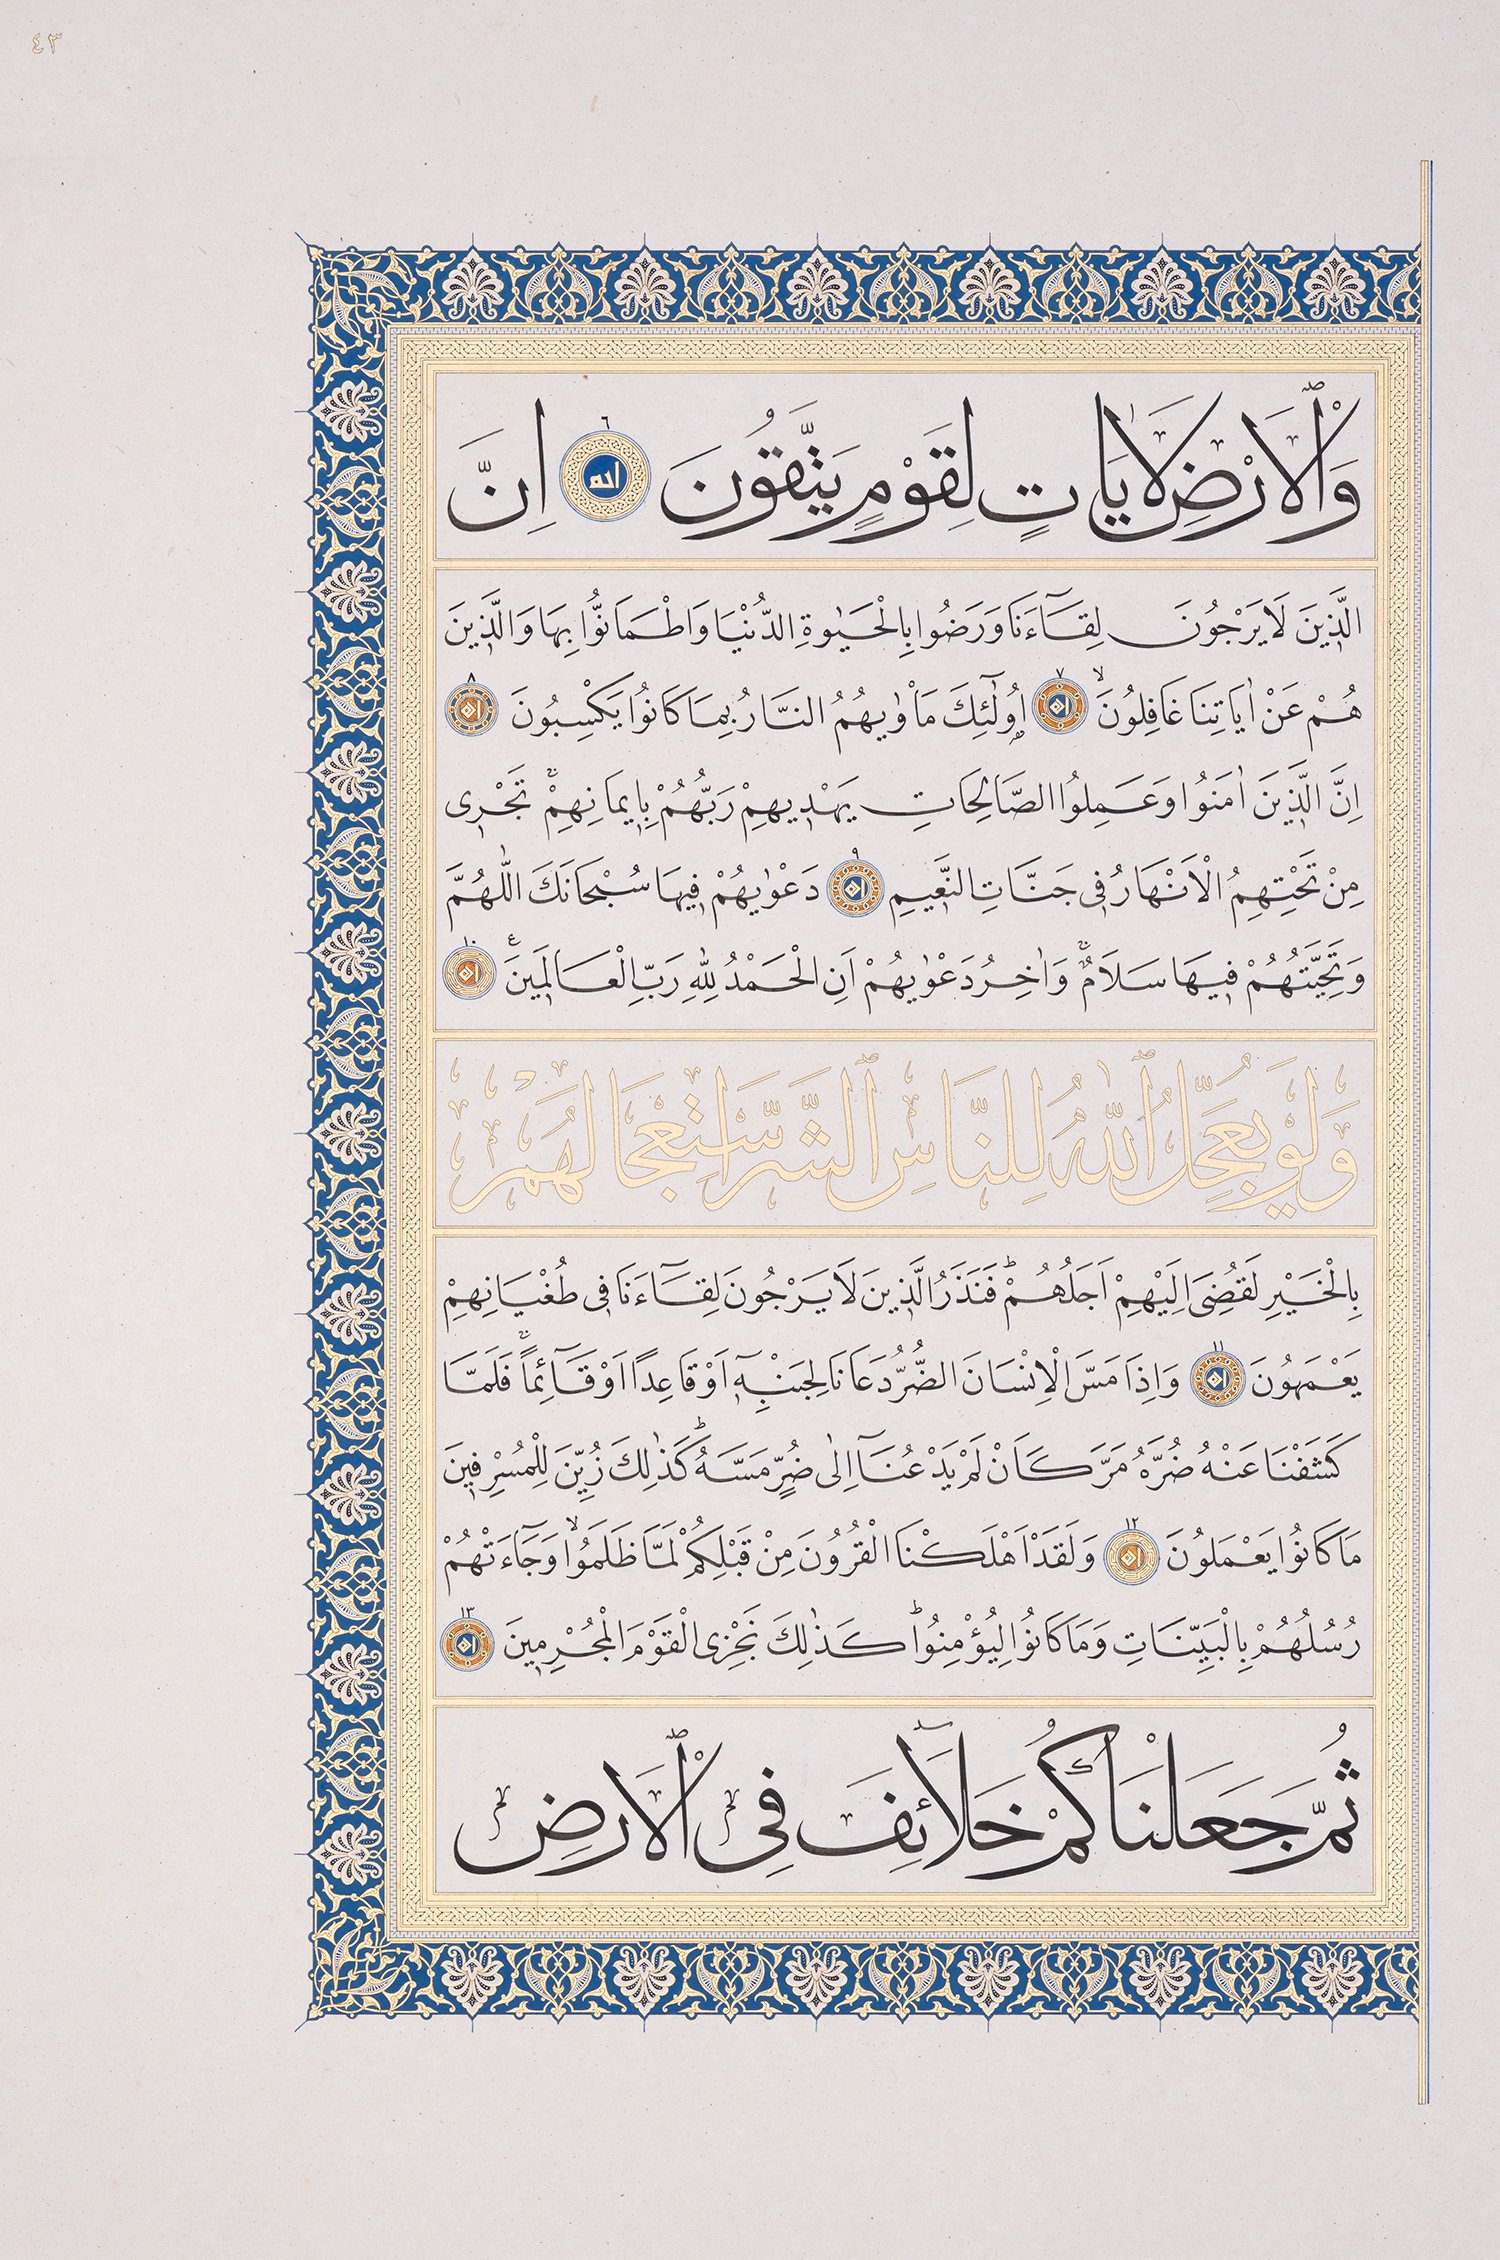 ٤٣
وَٱلْاَرْضِ لَاٰيَاتٍ لِقَوْمٍ يَتَّقُونَ ٦ اِنَّ
الَّذ۪ينَ لَا يَرْجُونَ لِقَٓاءَنَا وَرَضُوا بِالْحَيٰوةِ الدُّنْيَا وَاطْمَاَنُّوا بِهَا وَالَّذ۪ينَ
هُمْ عَنْ اٰيَاتِنَا غَافِلُونَۙ ٧ اُو۬لٰٓئِكَ مَأْوٰيهُمُ النَّارُ بِمَا كَانُوا يَكْسِبُونَ ٨
اِنَّ الَّذ۪ينَ اٰمَنُوا وَعَمِلُوا الصَّالِحَاتِ يَهْد۪يهِمْ رَبُّهُمْ بِا۪يمَانِهِمْۚ تَجْر۪ي
مِنْ تَحْتِهِمُ الْاَنْهَارُ ف۪ي جَنَّاتِ النَّع۪يمِ ٩ دَعْوٰيهُمْ ف۪يهَا سُبْحَانَكَ اللّٰهُمَّ
وَتَحِيَّتُهُمْ ف۪يهَا سَلَامٌۚ وَاٰخِرُ دَعْوٰيهُمْ اَنِ الْحَمْدُ لِلّٰهِ رَبِّ الْعَالَم۪ينَ۟ ١٠
وَلَوْ يُعَجِّلُ ٱللّٰهُ لِلنَّاسِ ٱلشَّرَّ ٱسْتِعْجَالَهُمْ
بِالْخَيْرِ لَقُضِيَ اِلَيْهِمْ اَجَلُهُمْۜ فَنَذَرُ الَّذ۪ينَ لَا يَرْجُونَ لِقَٓاءَنَا ف۪ي طُغْيَانِهِمْ
يَعْمَهُونَ ١١ وَاِذَا مَسَّ الْاِنْسَانَ الضُّرُّ دَعَانَا لِجَنْبِه۪ٓ اَوْ قَاعِداً اَوْ قَٓائِماًۚ فَلَمَّا
كَشَفْنَا عَنْهُ ضُرَّهُ مَرَّ كَاَنْ لَمْ يَدْعُنَٓا اِلٰى ضُرٍّ مَسَّهُۜ كَذٰلِكَ زُيِّنَ لِلْمُسْرِف۪ينَ
مَا كَانُوا يَعْمَلُونَ ١٢ وَلَقَدْ اَهْلَكْنَا الْقُرُونَ مِنْ قَبْلِكُمْ لَمَّا ظَلَمُواۙ وَجَٓاءَتْهُمْ
رُسُلُهُمْ بِالْبَيِّنَاتِ وَمَا كَانُوا لِيُؤْمِنُواۜ كَذٰلِكَ نَجْزِي الْقَوْمَ الْمُجْرِم۪ينَ ١٣
ثُمَّ جَعَلْنَاكُمْ خَلَٓائِفَ فِي ٱلْاَرْضِ